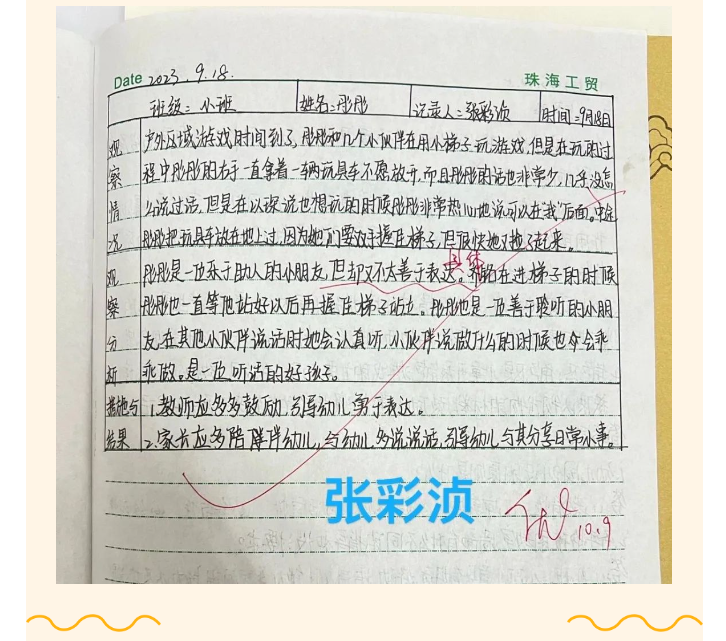 Date 2023.9.18.
珠海工贸
班级：小班 姓名：彤彤 记录人：张彩浈 时间：9月18日
观察情况
户外区域游戏时间到了，彤彤和几个小伙伴在用小梯子玩游戏，但是在玩的过
程中彤彤的右手一直拿着一辆玩具车不愿放开，而且彤彤的话也非常少，几乎没怎
么说过话，但是在以琛说也想玩的时候彤彤非常热心地说可以在“我”后面。中途
彤彤把玩具车放在地上过，因为她们要双手握住梯子，但很快她又拖了起来。
观察分析
彤彤是一位乐于助人的小朋友，但却又不太善于表达。具体 在进梯子的时候
彤彤也一直等他站好以后再握住梯子站立。彤彤也是一位善于聆听的小朋
友，在其他小伙伴说话时她会认真听，小伙伴说做什么的时候也会乖
乖做。是一位听话的好孩子。
措施与结果
1.教师应多多鼓励，引导幼儿勇于表达。
2.家长应多陪伴幼儿，与幼儿多说说话，引导幼儿与其分享日常小事。
张彩浈
10.9